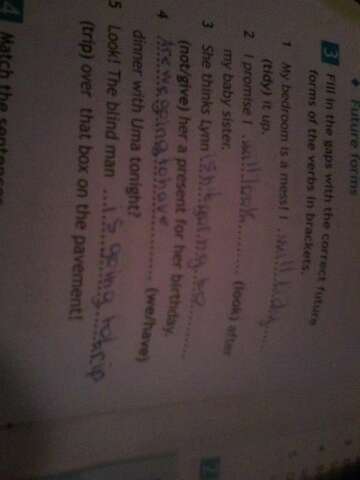 future forms
3 Fill in the gaps with the correct future
forms of the verbs in brackets.
1 My bedroom is a mess! I will tidy
(tidy) it up.
2 I promise I will look (look) after
my baby sister.
3 She thinks Lynn
(not/give) her a present for her birthday.
4 Are we going to have (we/have)
dinner with Uma tonight?
5 Look! The blind man is going to trip
(trip) over that box on the pavement!
4 Match the sentences
2